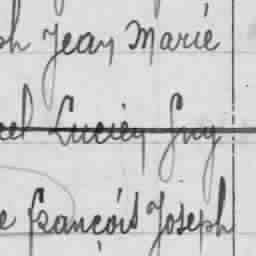 ph Jean Marie
cel Lucien Guy
e françois Joseph